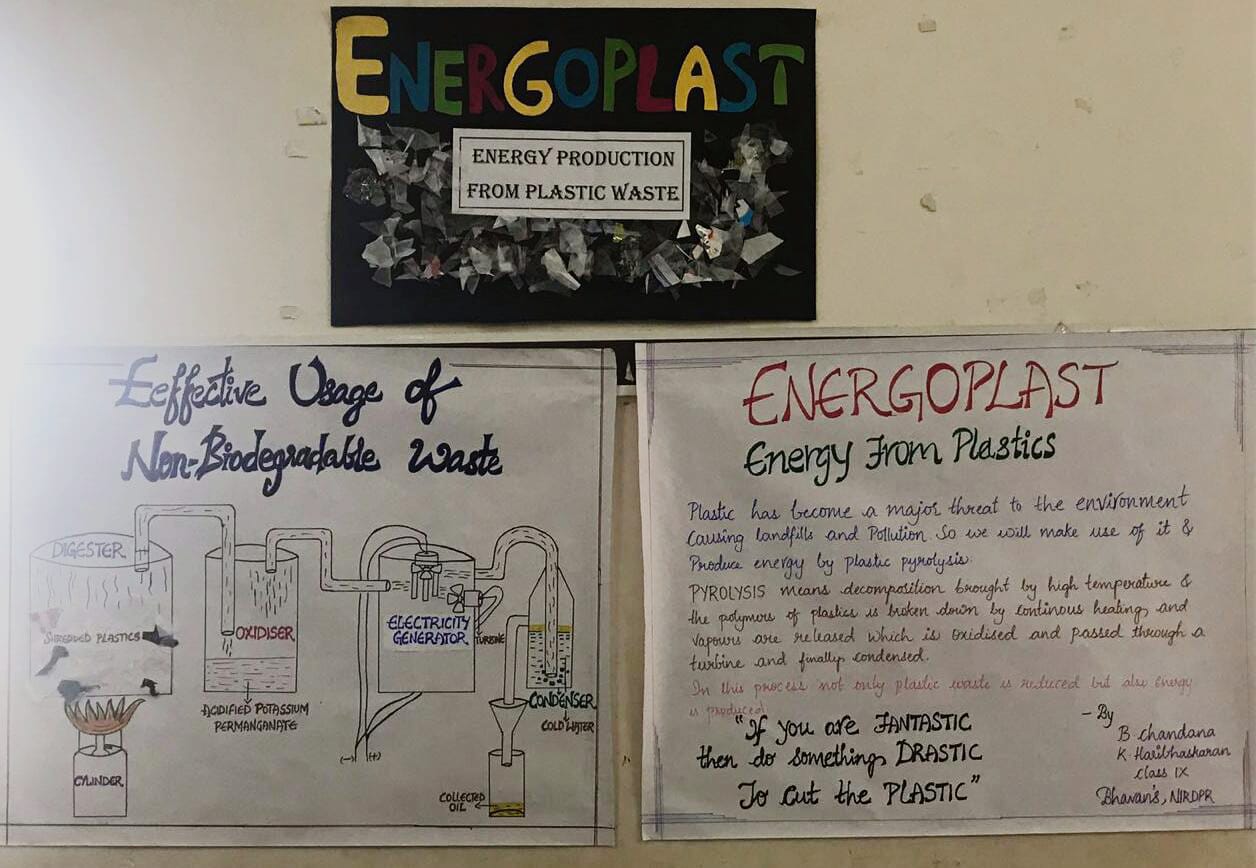 ENERGOPLAST
ENERGY PRODUCTION
FROM PLASTIC WASTE
Eeffective Usage of
Non-Biodegradable Waste
DIGESTER
SHREDDED PLASTICS
OXIDISER
ELECTRICITY
GENERATOR
TURBINE
ACIDIFIED POTASSIUM
PERMANGANATE
CONDENSER
COLD WATER
CYLINDER
(-) (+)
COLLECTED
OIL
ENERGOPLAST
Energy From Plastics
Plastic has become a major threat to the environment
causing landfills and Pollution. So we will make use of it &
Produce energy by plastic pyrolysis.
PYROLYSIS means decomposition brought by high temperature &
the polymers of plastics is broken down by continous heating, and
vapours are released which is oxidised and passed through a
turbine and finally condensed.
In this process not only plastic waste is reduced but also energy
is produced.
"If you are FANTASTIC
then do something DRASTIC
To cut the PLASTIC"
- By
B. Chandana
K. Haribhaskaran
class IX
Bhavan's, NIRDPR